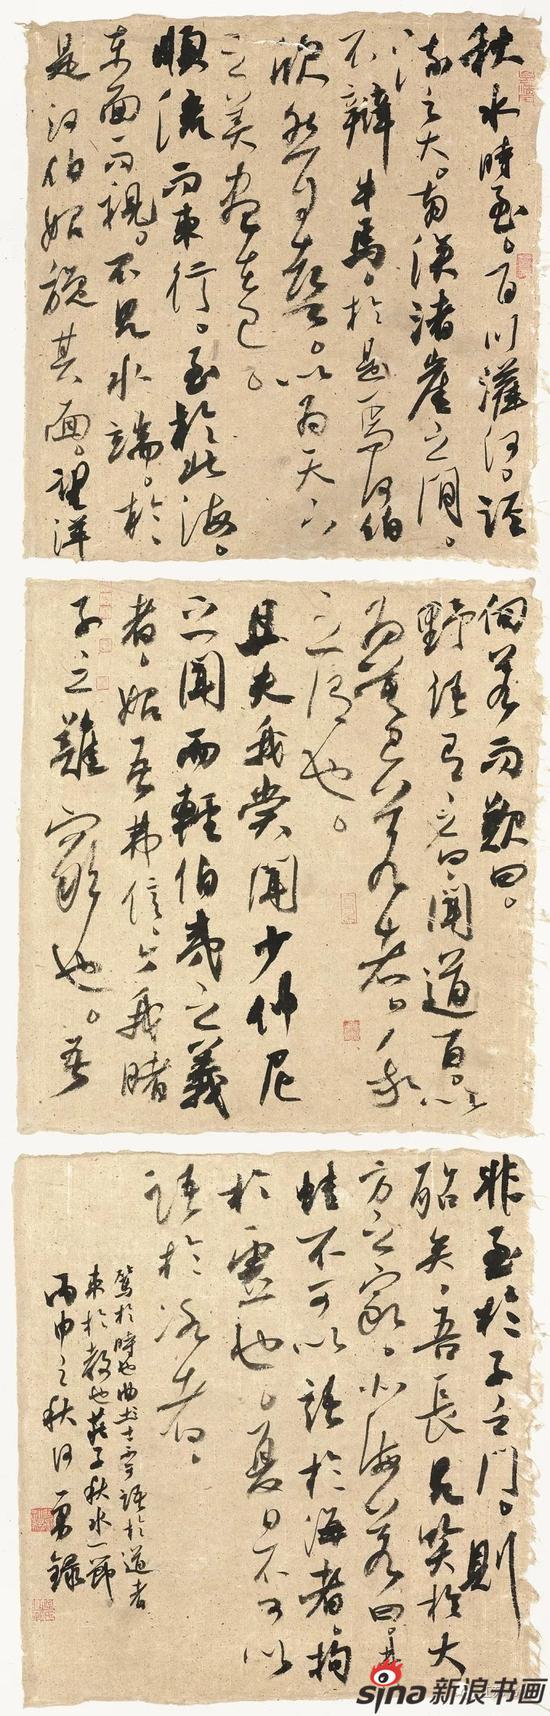 秋水時至。百川灌河。涇
流之大。兩涘渚崖之間。
不辯牛馬。於是焉河伯
欣然自喜。以為天下
之美盡在己。
順流而東行。至於北海。
東面而視。不見水端。於
是河伯始旋其面。望洋
向若而歎曰。
野語有之曰聞道百以
為莫己若者。我
之謂也。
且夫我嘗聞少仲尼
之聞而輕伯夷之義
者、始吾弗信。今我睹
子之難窮也。吾
非至於子之門。則
殆矣、吾長見笑於大
方之家。北海若曰。井
蛙不可以語於海者拘
於虛也。夏不可以
語於冰者。
篤於時也曲士不可語於道者
束於教也莊子秋水一節
丙申之秋勇錄
sina新浪书画